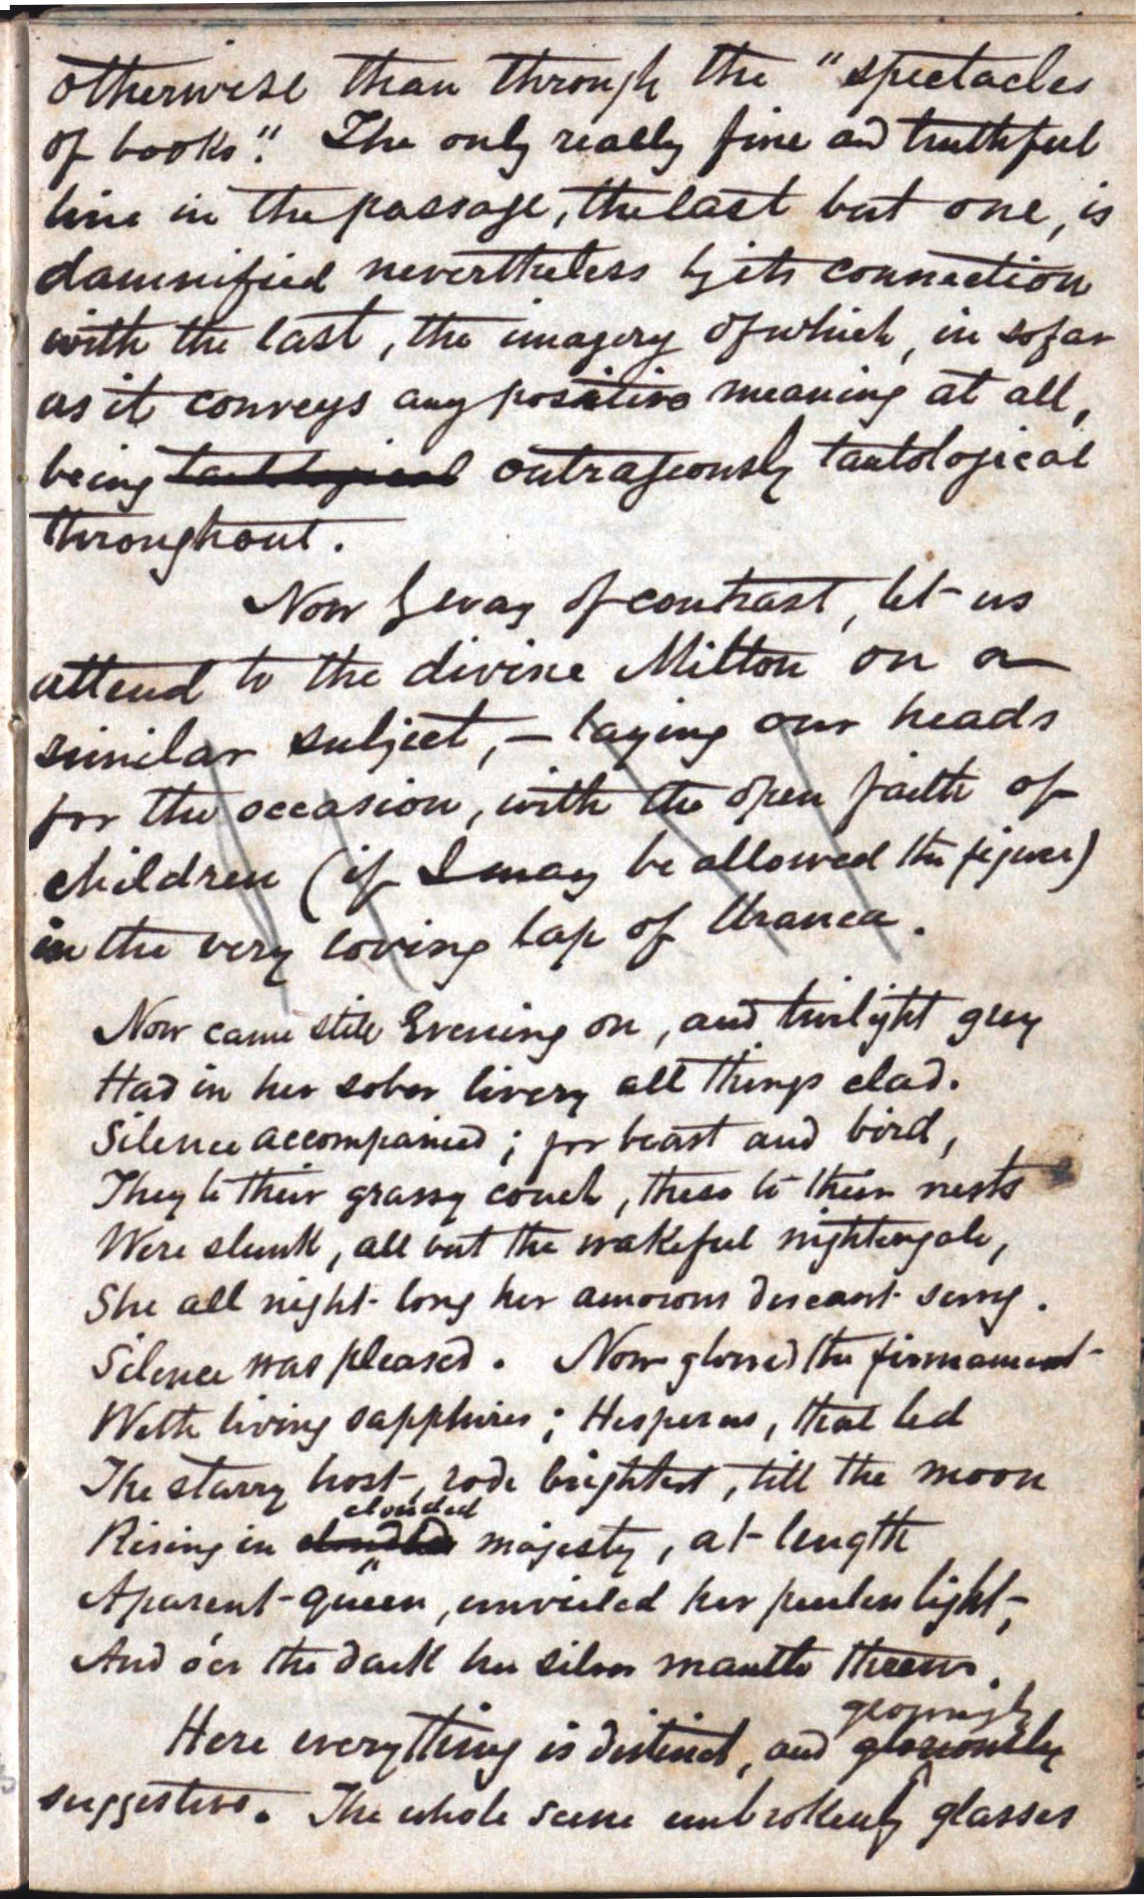 otherwise than through the "spectacles
of books". The only really fine and truthful
line in the passage, the last but one, is
damnified nevertheless by its connection
with the last, the imagery of which, in so far
as it conveys any positive meaning at all,
being tautological outrageously tautological
throughout.
Now by way of contrast, let us
attend to the divine Milton on a
similar subject, — laying our heads
for the occasion, with the open faith of
children (if I may be allowed the figure)
in the very loving lap of Uranea.
Now came still Evening on, and twilight grey
Had in her sober livery all things clad.
Silence accompanied; for beast and bird,
They to their grassy couch, these to their nests
Were slunk, all but the wakeful nightengale,
She all night long her amorous descant sung.
Silence was pleased. Now glowed the firmament
With living sapphires; Hesperus, that led
The starry host, rode brightest, till the moon
clouded
Rising in clouded majesty, at length
Aparent queen, unveiled her peerless light,
And o'er the dark her silver mantle threw.
glowingly
Here everything is distinct, and gloriously
suggestive. The whole scene unbrokenly glasses